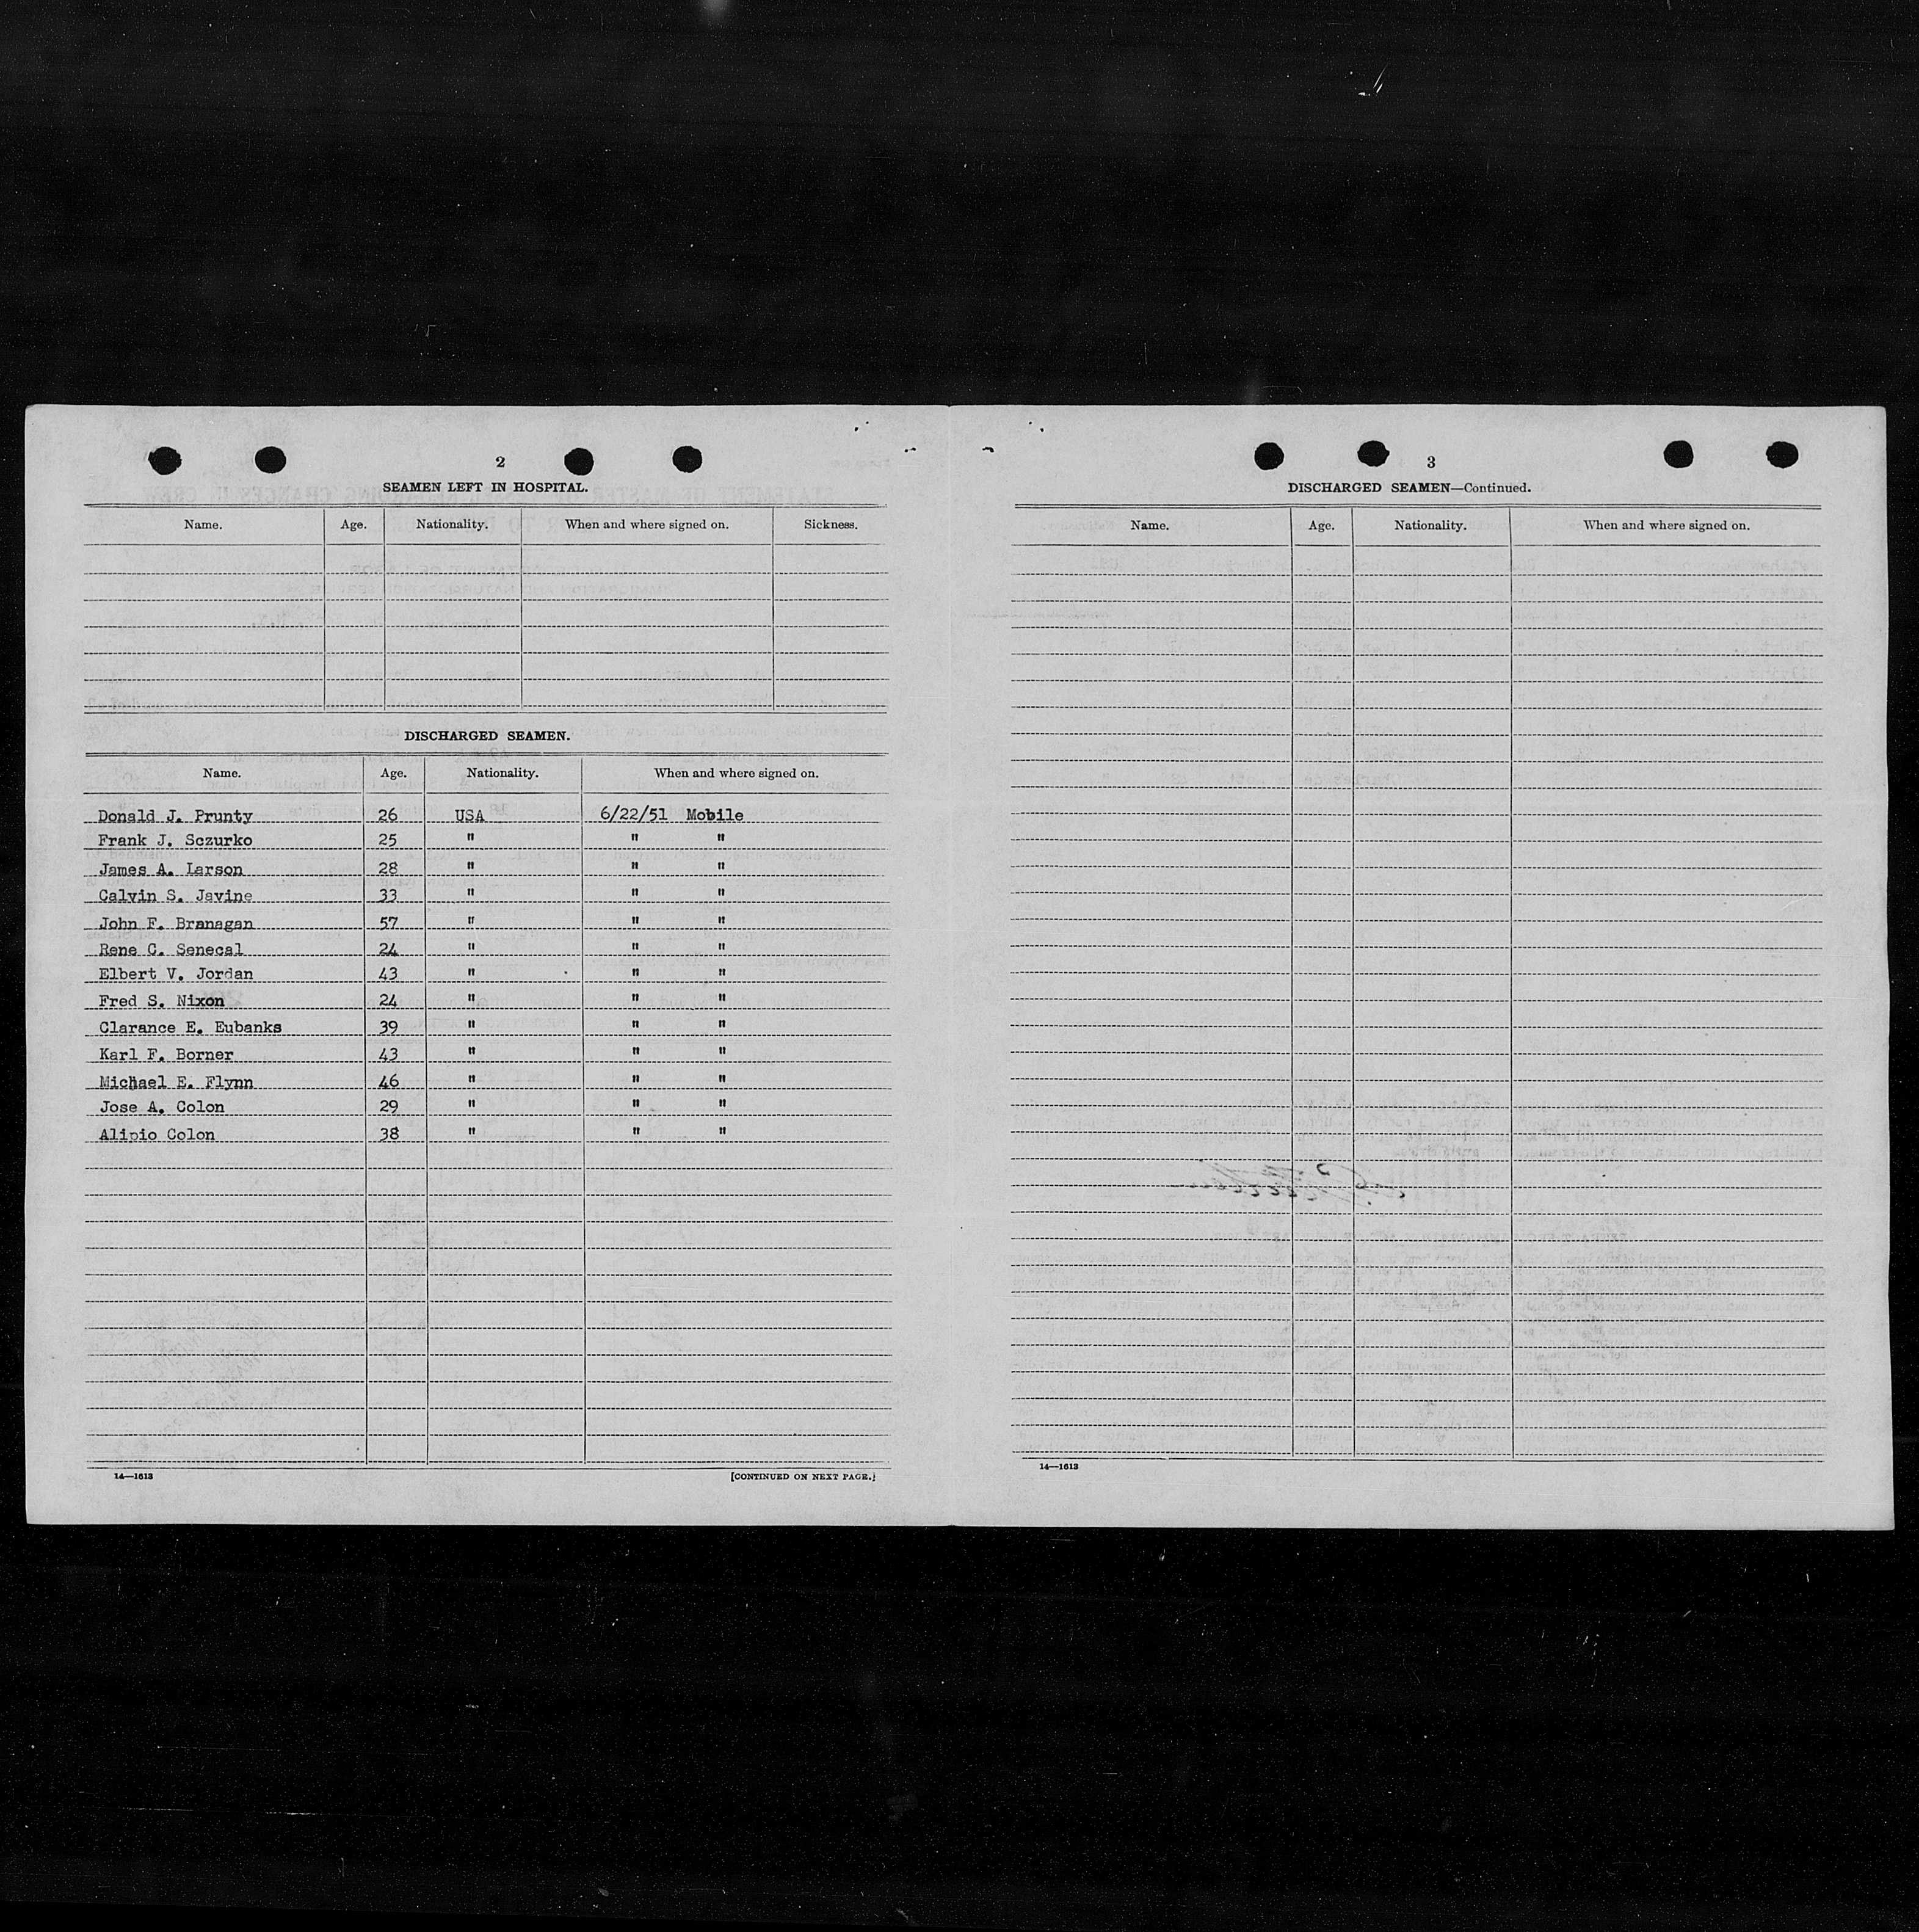 2
SEAMEN LEFT IN HOSPITAL.
Name. Age. Nationality. When and where signed on. Sickness.
DISCHARGED SEAMEN.
Name. Age. Nationality. When and where signed on.
Donald J. Prunty 26 USA 6/22/51 Mobile
Frank J. Sczurko 25 " " "
James A. Larson 28 " " "
Calvin S. Javine 33 " " "
John F. Branagan 57 " " "
Rene C. Senecal 24 " " "
Elbert V. Jordan 43 " " "
Fred S. Nixon 24 " " "
Clarance E. Eubanks 39 " " "
Karl F. Borner 43 " " "
Michael E. Flynn 46 " " "
Jose A. Colon 29 " " "
Alipio Colon 38 " " "
14—1613
[CONTINUED ON NEXT PAGE.]
3
DISCHARGED SEAMEN—Continued.
Name. Age. Nationality. When and where signed on.
14—1613